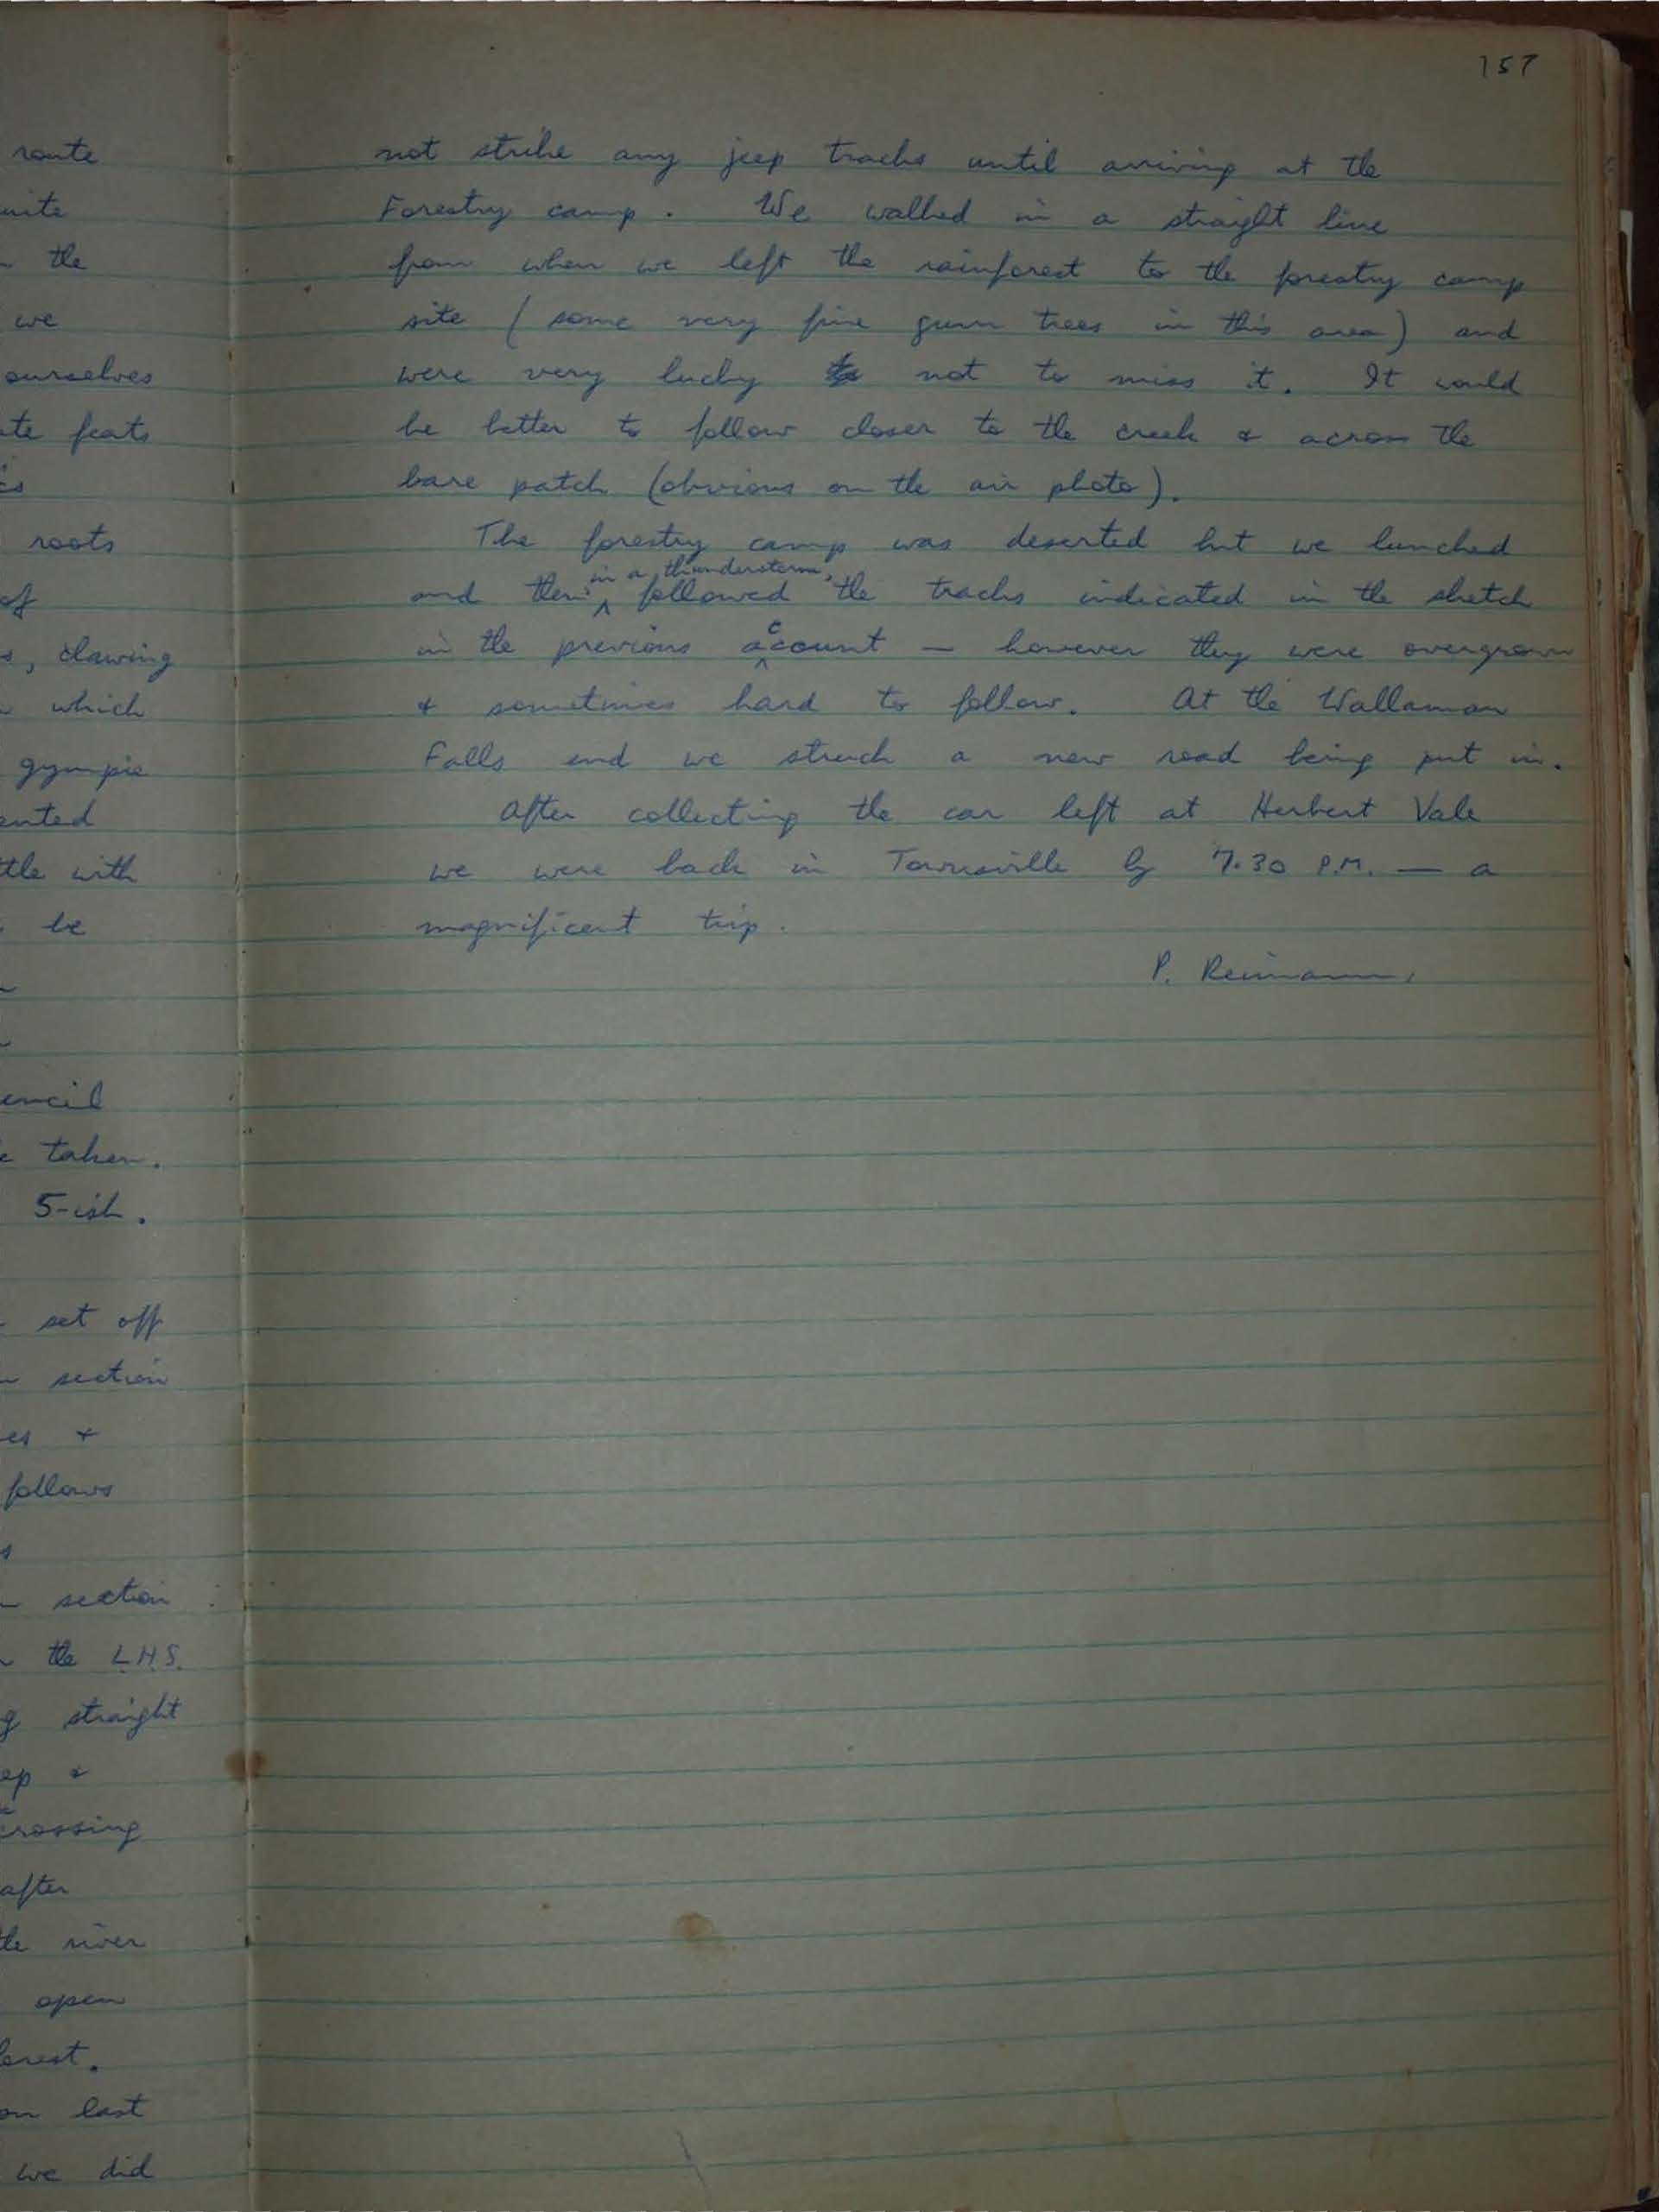 route
the
we
ourselves
feats
roots
of
clawing
which
gympie
with
be
taken.
5-ish.
set off
section
&
follows
section
the L.H.S.
straight
&
crossing
after
river
open
last
we did
157
not strike any jeep tracks until arriving at the
Forestry camp. We walked in a straight line
from when we left the rainforest to the forestry camp
site (some very fine gum trees in this area) and
were very lucky to not to miss it. It would
be better to follow closer to the creek & across the
bare patch (obvious on the air photo).
The forestry camp was deserted but we lunched
and then in a thunderstorm, followed the tracks indicated in the sketch
in the previous account — however they were overgrown
& sometimes hard to follow. At the Wallaman
Falls end we struck a new road being put in.
After collecting the car left at Herbert Vale
we were back in Townsville by 7.30 P.M. — a
magnificent trip.
P. Reimann.